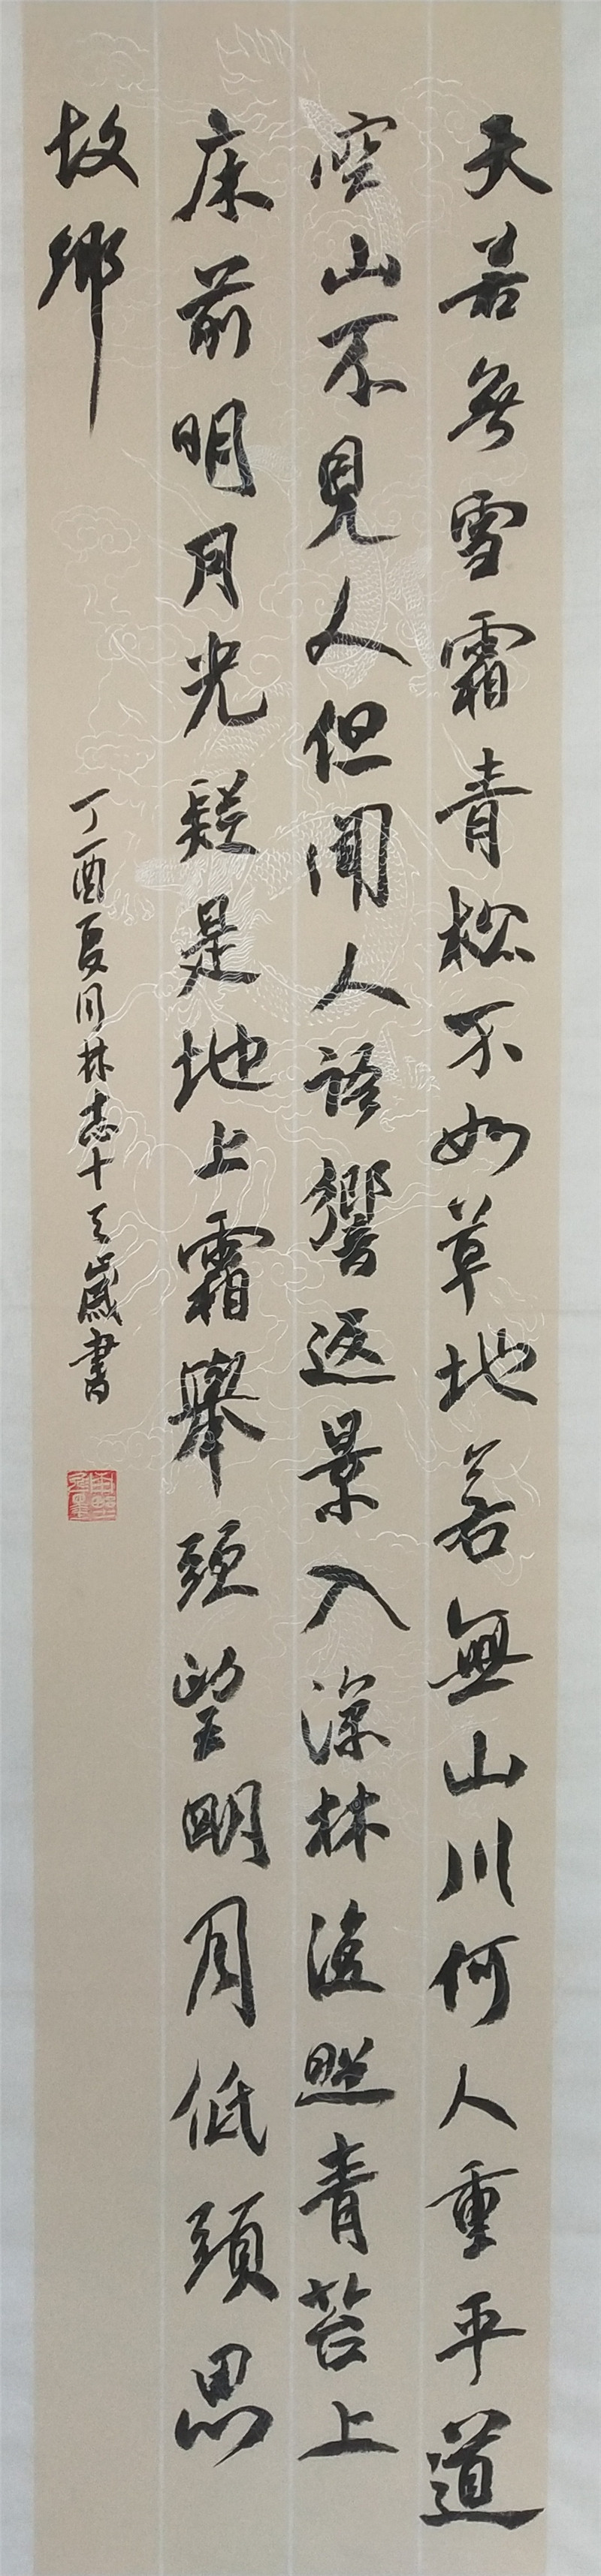 天若無雪霜青松不如草地若無山川何人重平道
空山不見人但聞人語響返景入深林復照青苔上
床前明月光疑是地上霜舉頭望明月低頭思
故鄉
丁酉夏月林志十三歲書